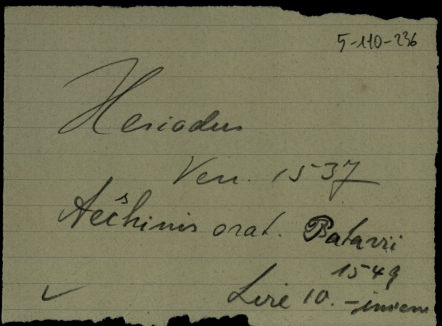 5-110-236
Hesiodus
Ven. 1537
Aeschinis orat. Patavii
1549
Lire 10. -